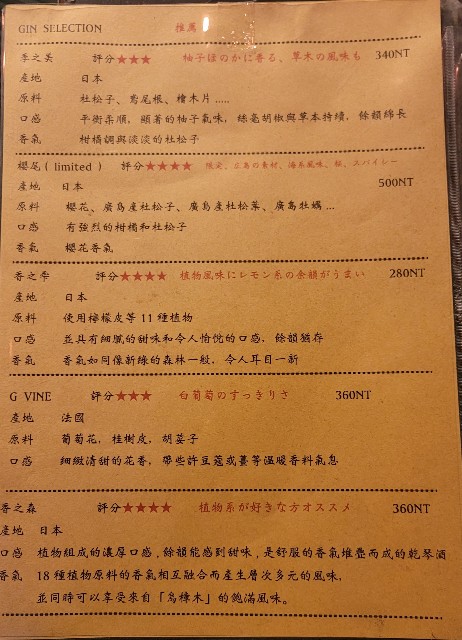 GIN SELECTION 推薦
季之美 評分★★★ 柚子ほのかに香る、草木の風味も 340NT
產地 日本
原料 杜松子、鳶尾根、檜木片.....
口感 平衡柔順，顯著的柚子氣味，絲毫胡椒與草本持續，餘韻綿長
香氣 柑橘調與淡淡的杜松子
櫻尾( limited ) 評分★★★★ 限定、広島の素材、海系風味、桜、スパイシー
產地 日本 500NT
原料 櫻花、廣島產杜松子、廣島產杜松葉、廣島牡蠣...
口感 有強烈的柑橘和杜松子
香氣 櫻花香氣
香之雫 評分★★★★ 植物風味にレモン系の余韻がうまい 280NT
產地 日本
原料 使用檸檬皮等 11 種植物
口感 並具有細膩的甜味和令人愉悅的口感，餘韻猶存
香氣 香氣如同像新綠的森林一般，令人耳目一新
G VINE 評分★★★ 白葡萄のすっきりさ 360NT
產地 法國
原料 葡萄花，桂樹皮，胡荽子
口感 細緻清甜的花香，帶些許豆蔻或薑等溫暖香料氣息
香之森 評分★★★★ 植物系が好きな方オススメ 360NT
產地 日本
口感 植物組成的濃厚口感，餘韻能感到甜味，是舒服的香氣堆疊而成的乾琴酒
香氣 18 種植物原料的香氣相互融合而產生層次多元的風味，
並同時可以享受來自「烏樟木」的飽滿風味。